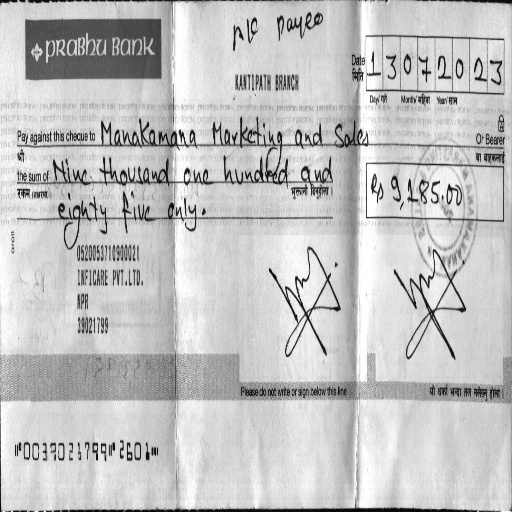 PRABHU BANK
A/C payee
KANTIPATH BRANCH
Date
मिति
13072023
Day/गते Month/महिना Year/साल
Pay against this cheque to Manakamana Marketing and Sales
Or Bearer
श्री
वा वाहकलाई
the sum of Nine thousand one hundred and
रकम (अक्षरमा)
भुक्तानी दिनुहोला ।
eighty five only.
Rs 9,185.00
0520053710900021
INFICARE PVT.LTD.
NPR
39021799
Please do not write or sign below this line
यो धर्का भन्दा तल नलेख्नु होला ।
⑈0039021799⑈ 2601⑈